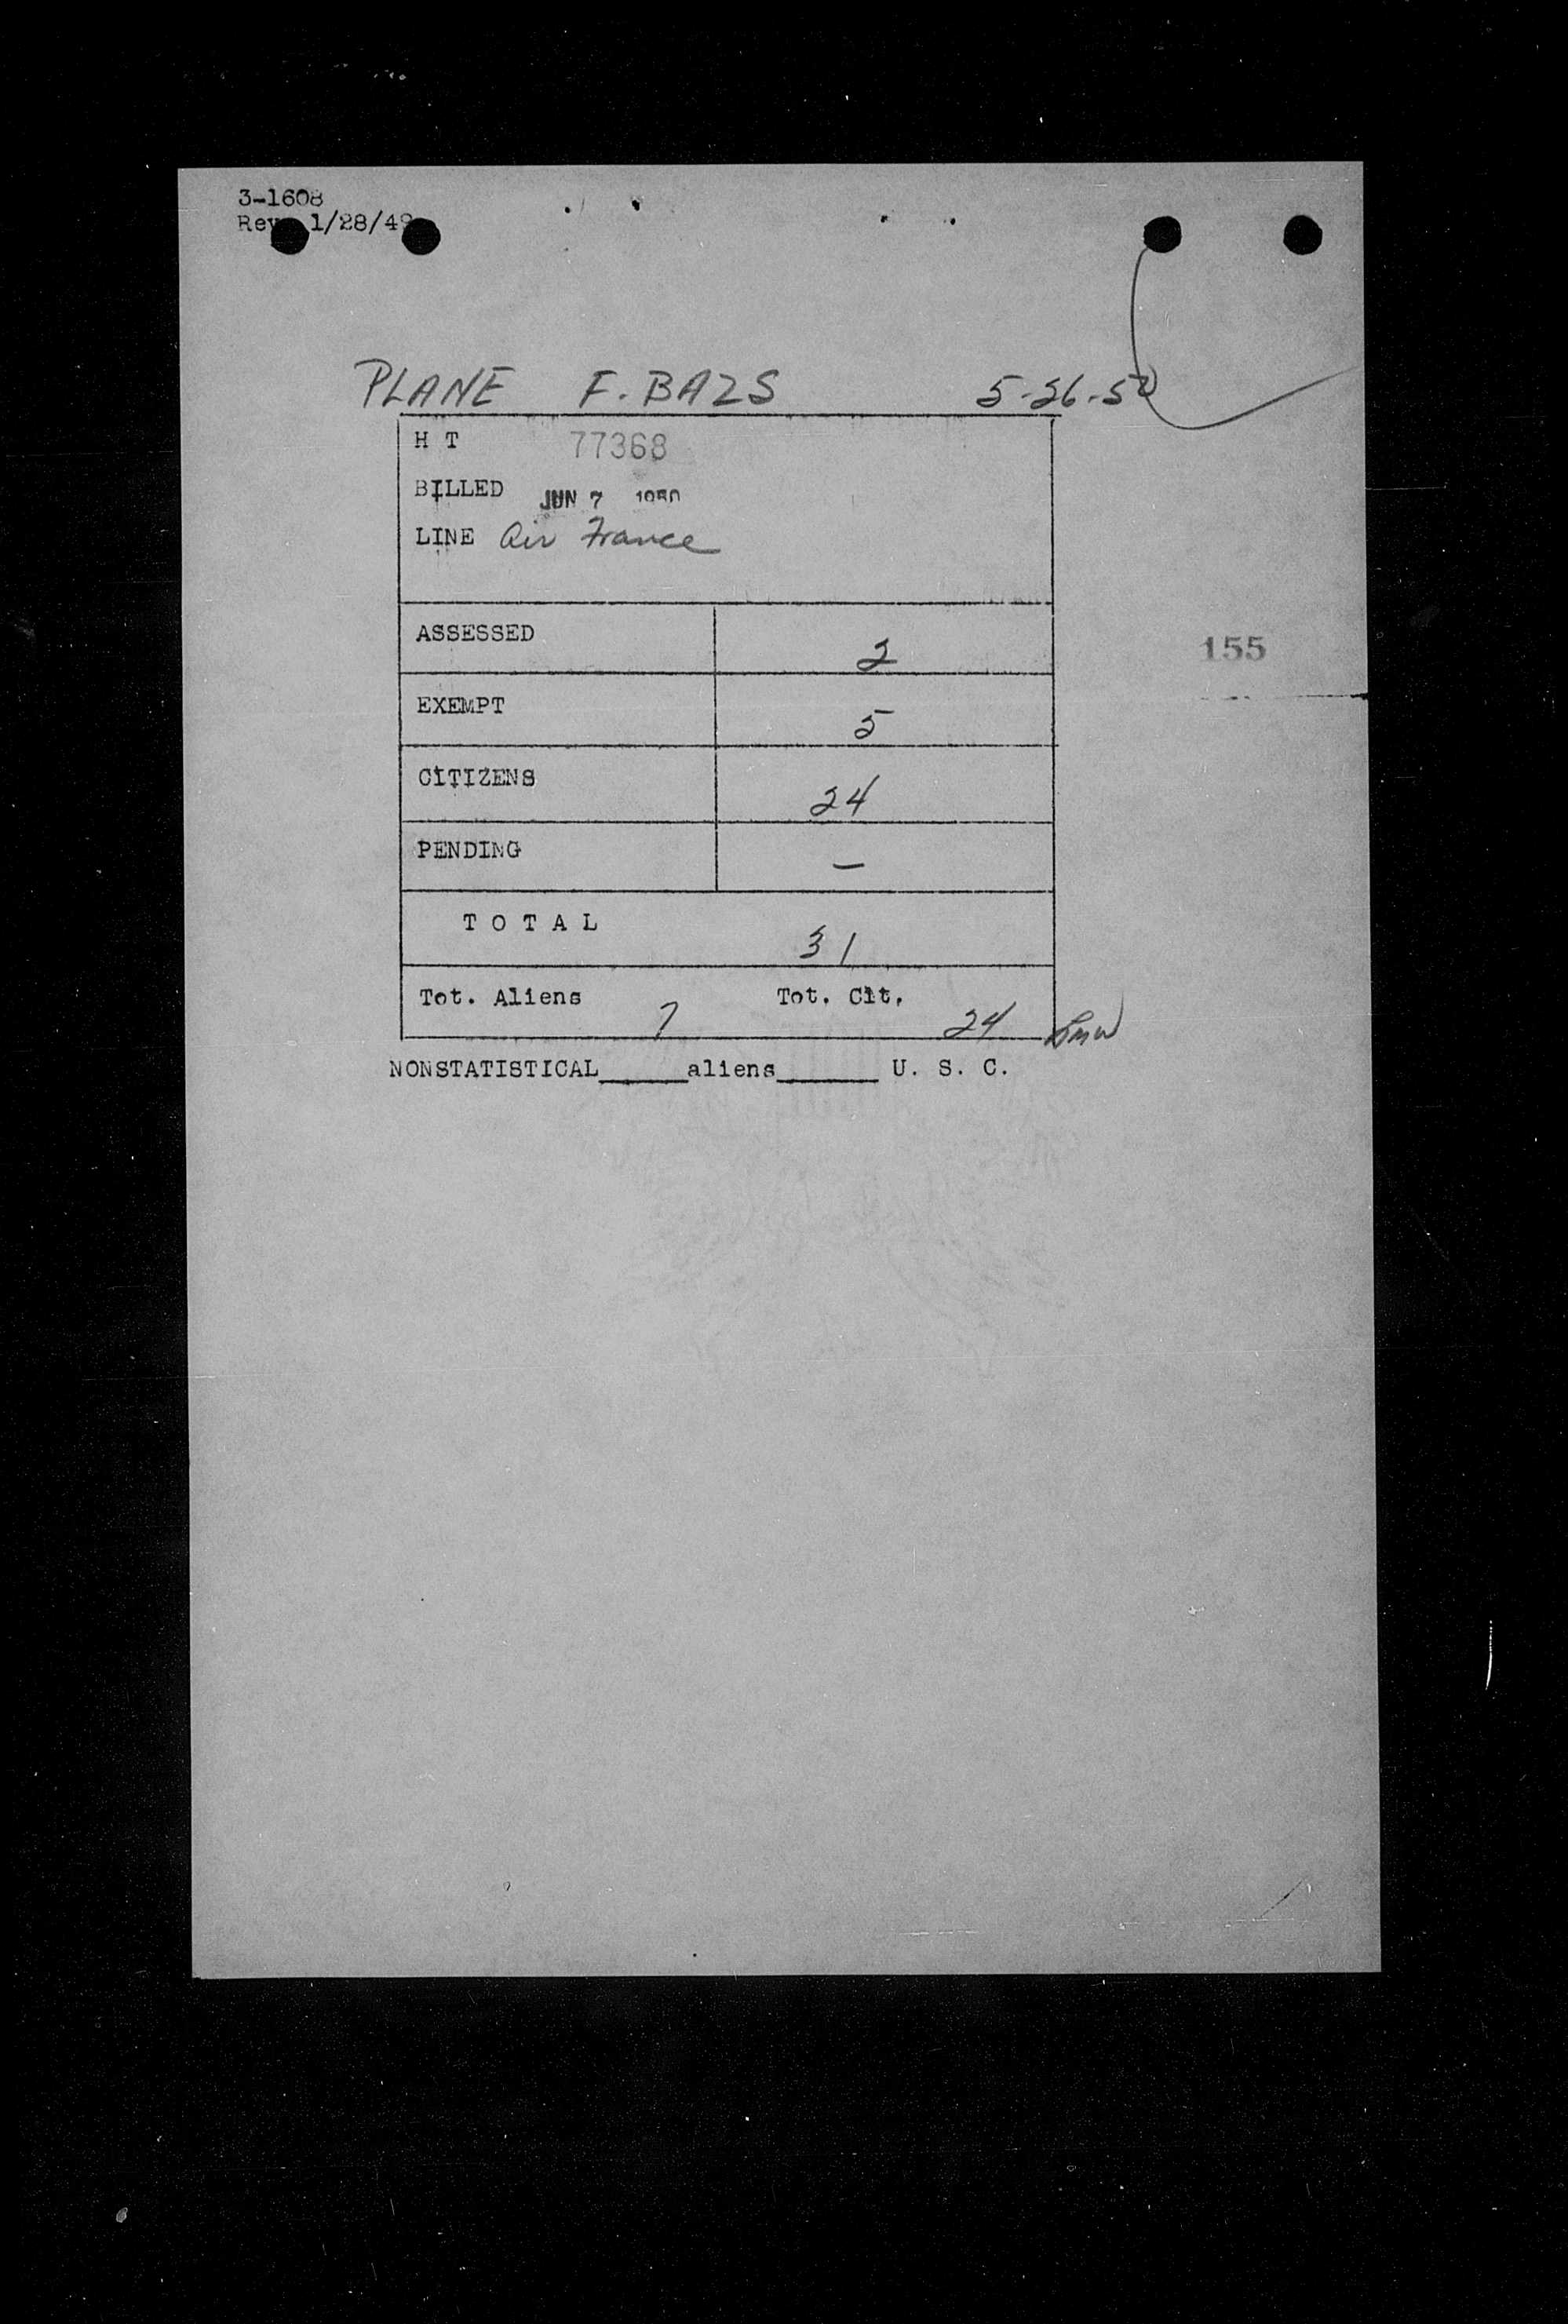 3-1608
Rev. 1/28/49
PLANE F. BAZS 5-26-50
H T 77368
BILLED JUN 7 1950
LINE Air France
ASSESSED 2
EXEMPT 5
CITIZENS 24
PENDING —
TOTAL 31
Tot. Aliens 7 Tot. Cit. 24
NONSTATISTICAL______aliens_______ U. S. C.
155